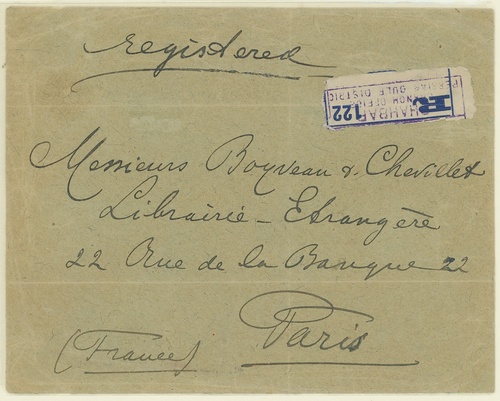 registered
R
122
BRANCH OFFICE
PERSIAN GULF DISTRIC
Messieurs Boyveau & Chevillet
Librairie - Etrangère
22 Rue de la Banque 22
Paris
(France)